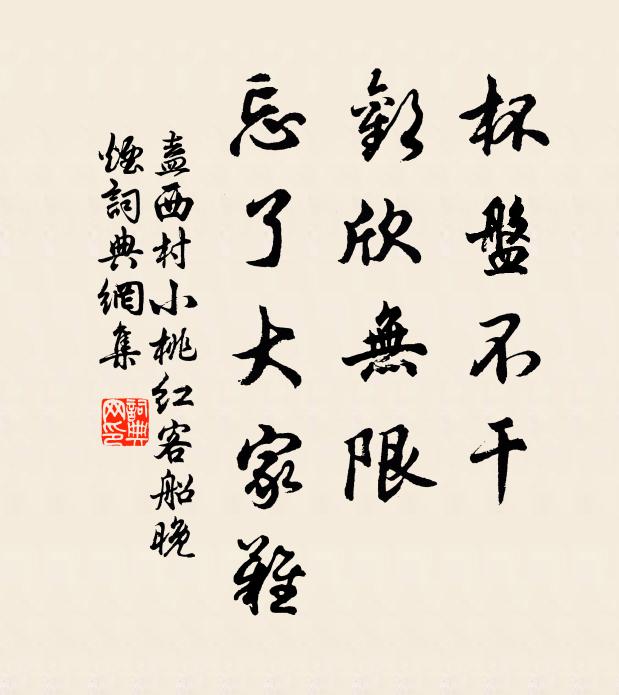 杯盤不干
歡欣無限
忘了大家難
盍西村小桃红客船晚
煙詞典網集
詞典
网印